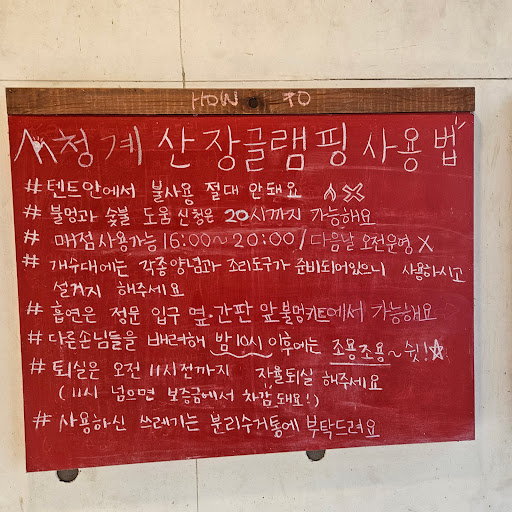 HOW TO
청계산장글램핑 사용법
# 텐트안에서 불사용 절대 안돼요
# 불멍과 숯불 도움 신청은 20시까지 가능해요
# 매점사용가능 16:00~20:00/다음날 오전운영 X
# 개수대에는 각종양념과 조리도구가 준비되어있으니 사용하시고
설거지 해주세요
# 흡연은 정문 입구 옆·간판 앞 불멍키트에서 가능해요
# 다른손님들을 배려해 밤 10시 이후에는 조용조용~쉿!☆
# 퇴실은 오전 11시전까지 자율퇴실 해주세요
(11시 넘으면 보증금에서 차감돼요!)
# 사용하신 쓰레기는 분리수거통에 부탁드려요